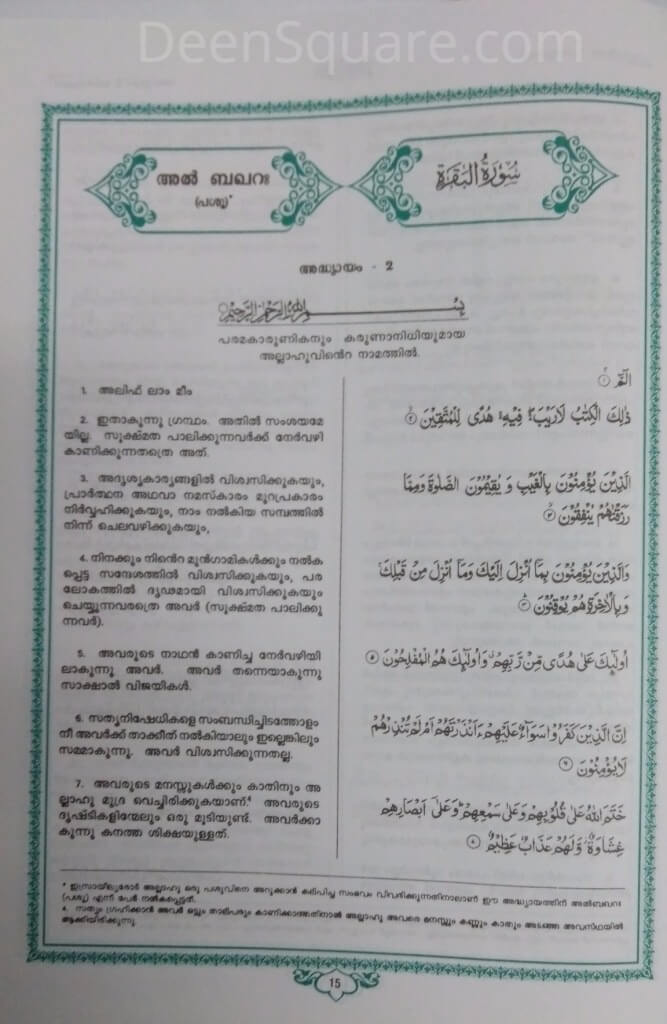 DeenSquare.com
അൽ ബഖറഃ
(പശു)*
سُوْرَةُ الْبَقَرَةِ
അദ്ധ്യായം - 2
بِسْمِ اللهِ الرَّحْمٰنِ الرَّحِيْمِ
പരമകാരുണികനും കരുണാനിധിയുമായ
അല്ലാഹുവിൻെറ നാമത്തിൽ.
1. അലിഫ് ലാം മീം
2. ഇതാകുന്നു ഗ്രന്ഥം. അതിൽ സംശയമേ
യില്ല. സൂക്ഷ്മത പാലിക്കുന്നവർക്ക് നേർവഴി
കാണിക്കുന്നതത്രെ അത്.
3. അദൃശ്യകാര്യങ്ങളിൽ വിശ്വസിക്കുകയും,
പ്രാർത്ഥന അഥവാ നമസ്കാരം മുറപ്രകാരം
നിർവ്വഹിക്കുകയും, നാം നൽകിയ സമ്പത്തിൽ
നിന്ന് ചെലവഴിക്കുകയും,
4. നിനക്കും നിൻെറ മുൻഗാമികൾക്കും നൽക
പ്പെട്ട സന്ദേശത്തിൽ വിശ്വസിക്കുകയും, പര
ലോകത്തിൽ ദൃഢമായി വിശ്വസിക്കുകയും
ചെയ്യുന്നവരത്രെ അവർ (സൂക്ഷ്മത പാലിക്കു
ന്നവർ).
5. അവരുടെ നാഥൻ കാണിച്ച നേർവഴിയി
ലാകുന്നു അവർ. അവർ തന്നെയാകുന്നു
സാക്ഷാൽ വിജയികൾ.
6. സത്യനിഷേധികളെ സംബന്ധിച്ചിടത്തോളം
നീ അവർക്ക് താക്കീത് നൽകിയാലും ഇല്ലെങ്കിലും
സമമാകുന്നു. അവർ വിശ്വസിക്കുന്നതല്ല.
7. അവരുടെ മനസ്സുകൾക്കും കാതിനും അ
ല്ലാഹു മുദ്ര വെച്ചിരിക്കുകയാണ്. അവരുടെ
ദൃഷ്ടികളിന്മേലും ഒരു മൂടിയുണ്ട്. അവർക്കാ
കുന്നു കനത്ത ശിക്ഷയുള്ളത്.
الٓمّٓ
ذٰلِكَ الْكِتٰبُ لَا رَيْبَ ۛ فِيْهِ ۛ هُدًى لِّلْمُتَّقِيْنَ
الَّذِيْنَ يُؤْمِنُوْنَ بِالْغَيْبِ وَيُقِيْمُوْنَ الصَّلٰوةَ وَمِمَّا
رَزَقْنٰهُمْ يُنْفِقُوْنَ
وَالَّذِيْنَ يُؤْمِنُوْنَ بِمَآ اُنْزِلَ اِلَيْكَ وَمَآ اُنْزِلَ مِنْ قَبْلِكَ
وَبِالْاٰخِرَةِ هُمْ يُوْقِنُوْنَ
اُولٰٓئِكَ عَلٰى هُدًى مِّنْ رَّبِّهِمْ وَاُولٰٓئِكَ هُمُ الْمُفْلِحُوْنَ
اِنَّ الَّذِيْنَ كَفَرُوْا سَوَآءٌ عَلَيْهِمْ ءَاَنْذَرْتَهُمْ اَمْ لَمْ تُنْذِرْهُمْ
لَا يُؤْمِنُوْنَ
خَتَمَ اللهُ عَلٰى قُلُوْبِهِمْ وَعَلٰى سَمْعِهِمْ وَعَلٰٓى اَبْصَارِهِمْ
غِشَاوَةٌ وَّلَهُمْ عَذَابٌ عَظِيْمٌ
* ഇസ്രായീല്യരോട് അല്ലാഹു ഒരു പശുവിനെ അറുക്കാൻ കല്പിച്ച സംഭവം വിവരിക്കുന്നതിനാലാണ് ഈ അദ്ധ്യായത്തിന് അൽബഖറഃ
(പശു) എന്ന് പേർ നൽകപ്പെട്ടത്.
സത്യം ഗ്രഹിക്കാൻ അവർ ഒട്ടും താല്പര്യം കാണിക്കാത്തതിനാൽ അല്ലാഹു അവരെ മനസ്സും കണ്ണും കാതും അടഞ്ഞ അവസ്ഥയിൽ
ആക്കിയിരിക്കുന്നു.
15